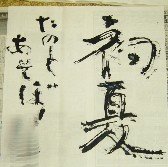 初夏
たのしく
あそぼう